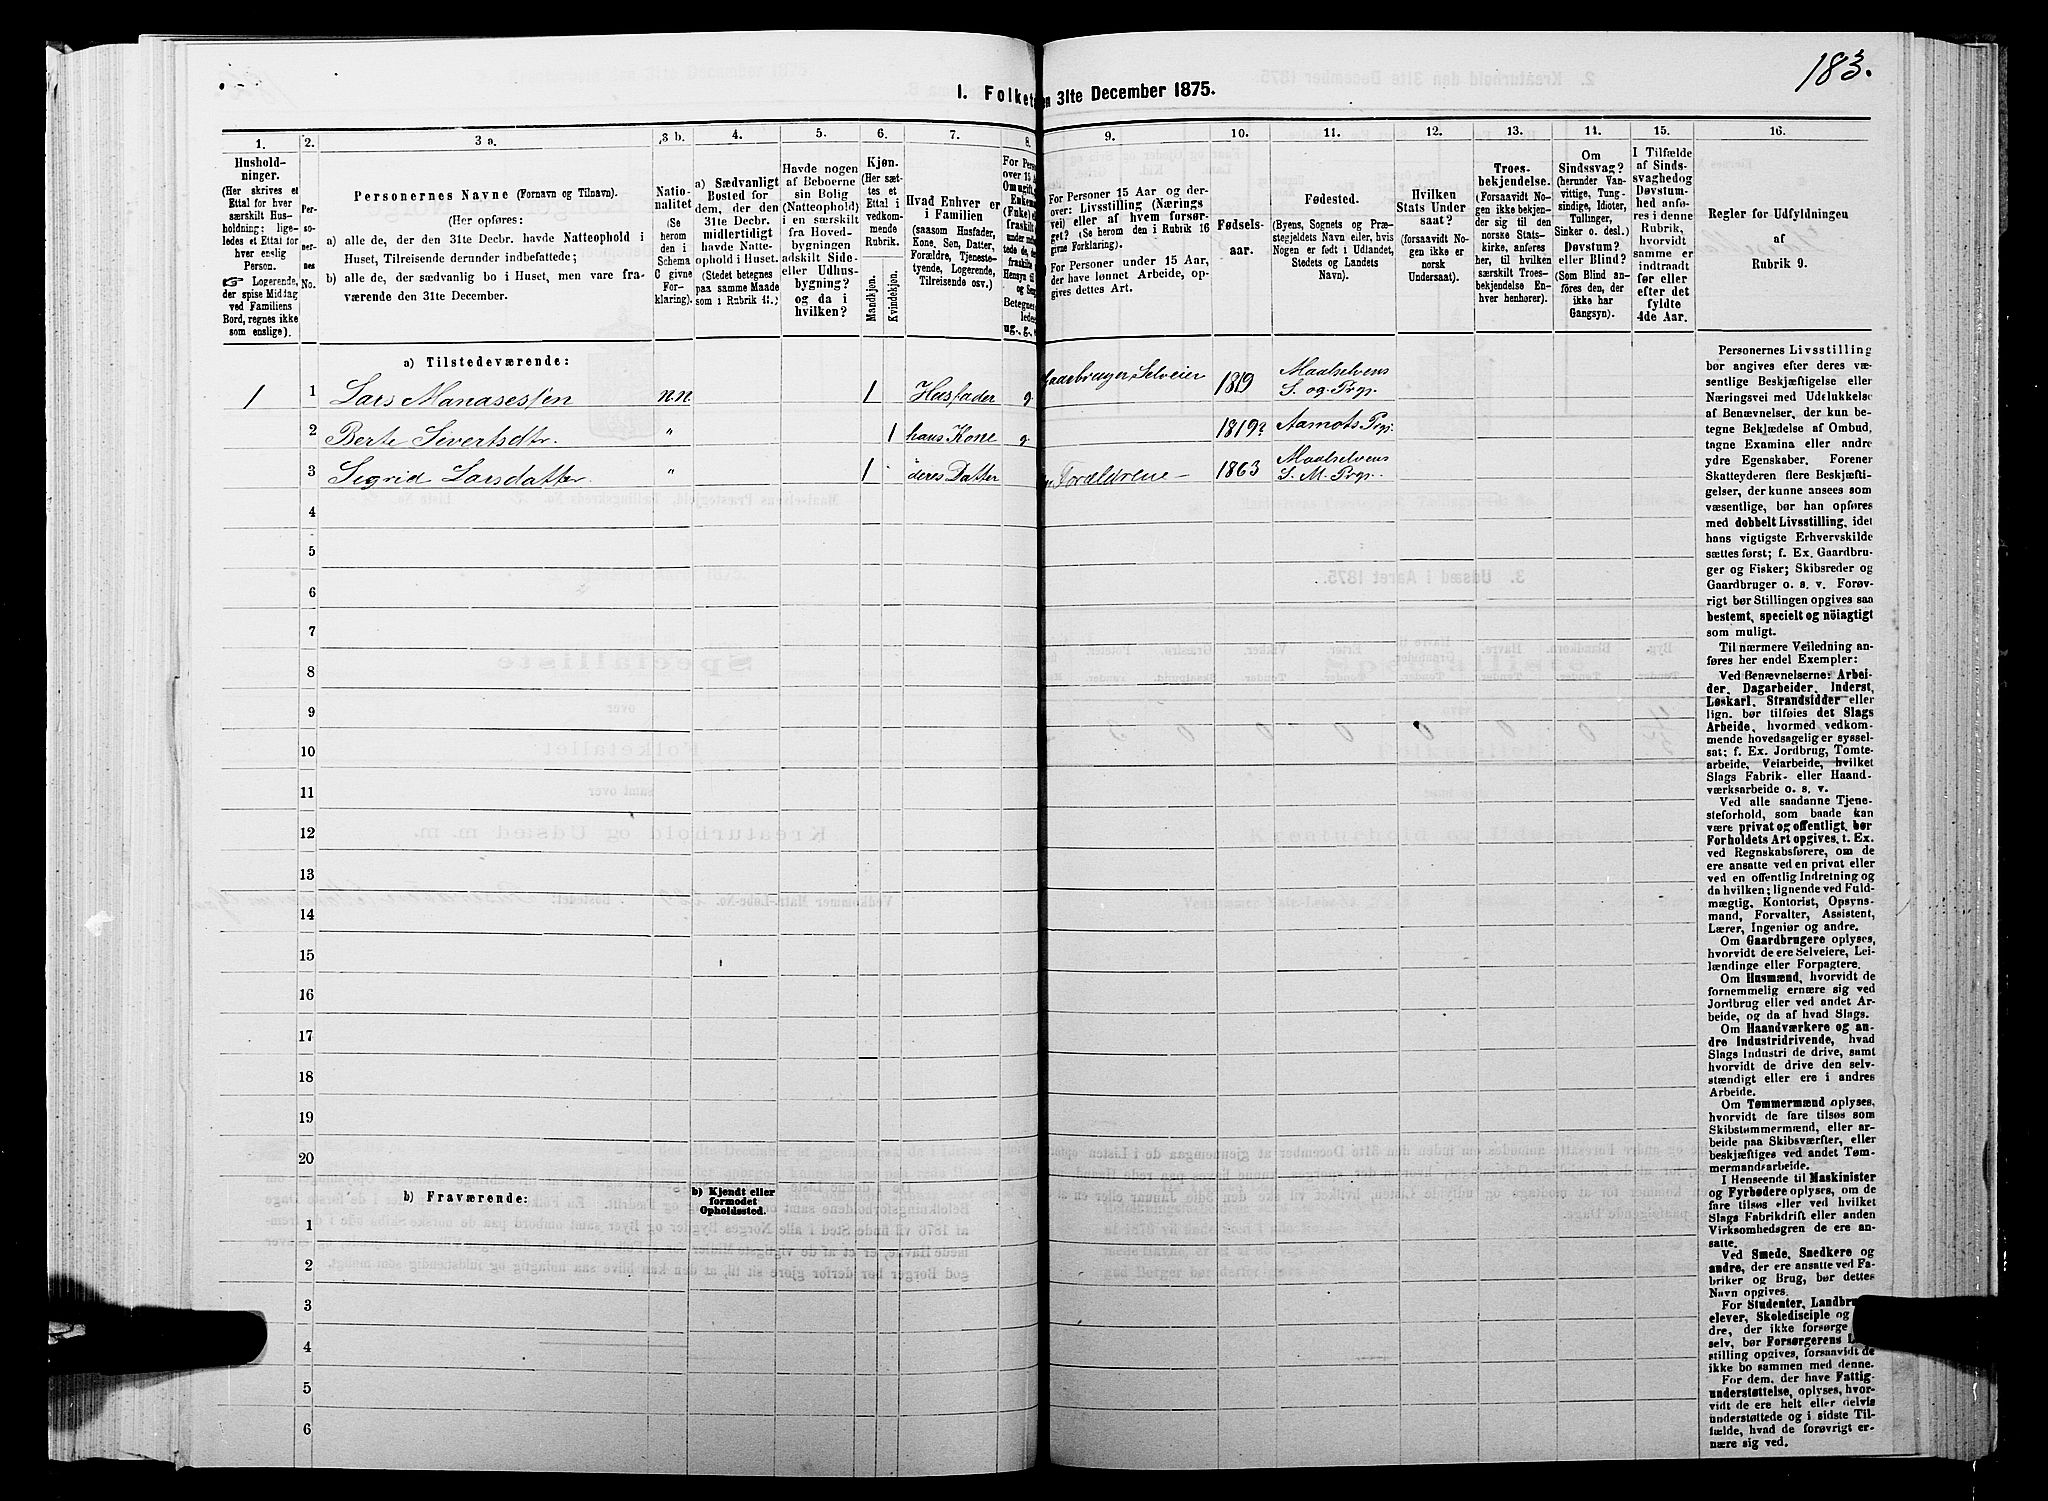 183.
1. Folket en 31te December 1875.
1.
2.
3 a.
3 b.
4.
5.
6.
7.
8.
9.
10.
11.
12.
13.
14.
15.
16.
Hushold-
ninger.
(Her skrives et
Ettal for hver
særskilt Hus-
holdning; lige-
ledes et Ettal for
hver enslig
Person.
☞ Logerende,
der spise Middag
ved Familiens
Bord, regnes ikke
som enslige).
Per-
so-
ner-
nes
No.
Personernes Navne (Fornavn og Tilnavn).
(Her opføres:
a) alle de, der den 31te Decbr. havde Natteophold i
Huset, Tilreisende derunder indbefattede;
b) alle de, der sædvanlig bo i Huset, men vare fra-
værende den 31te December.
Natio-
nalitet
(Se
herom
den i
Schema
C givne
For-
klaring).
a) Sædvanligt
Bosted for
dem, der den
31te Decbr.
midlertidigt
havde Natte-
ophold i Huset.
(Stedet betegnes
paa samme Maade
som i Rubrik 11.)
Havde nogen
af Beboerne
sin Bolig
(Natteophold)
i en særskilt
fra Hoved-
bygningen
adskilt Side-
eller Udhus-
bygning?
og da i
hvilken?
Kjøn.
(Her sæt-
tes et
Ettal i
vedkom-
mende
Rubrik.
Mandkjøn.
Kvindekjøn.
Hvad Enhver er
i Familien
(saasom Husfader,
Kone, Søn, Datter,
Forældre, Tjeneste-
tyende, Logerende,
Tilreisende osv.)
For Pers
over 15 A
Om ugift,
Enkem
(Fuke) el
frask
under
tede de,
fraskilte
Hensyn til
og Seng
Betegnes
ledes
ug., g.,
For Personer 15 Aar og der-
over: Livsstilling (Nærings
vei) eller af hvem forsør-
get? (Se herom i Rubrik 16
givne Forklaring).
For Personer under 15 Aar,
der have lønnet Arbeide, op-
gives dettes Art.
Fødsels-
aar.
Fødested.
(Byens, Sognets og Præ-
stegjeldets Navn eller, hvis
Nogen er født i Udlandet,
Stedets og Landets
Navn).
Hvilken
Stats Under
saat?
(forsaavidt No-
gen ikke er
norsk
Undersaat).
Troes-
bekjendelse.
(Forsaavidt No-
gen ikke bekjen-
der sig til den
norske Stats-
kirke, anføres
her, til hvilken
særskilt Troes-
bekjendelse En-
hver henhører).
Om
Sindssvag?
(herunder Van-
vittige, Tung-
sindige, Idioter,
Tullinger,
Sinker o. desl.)
Døvstum?
eller Blind?
(Som Blind an-
føres den, der
ikke har
Gangsyn).
I Tilfælde
af Sinds-
svaghed og
Døvstum-
hed anfø-
res i denne
Rubrik,
hvorvidt
samme er
indtraadt
før eller
efter det
fyldte
4de Aar.
Regler for Udfyldningen
af
Rubrik 9.
a) Tilstedeværende:
1 1 Lars Manasessen n.n. 1 Husfader g. Gaardbruger Selveier 1819 Maalselvens
S. og Prgj.
2 Berte Sivertsdtr. " 1 hans Kone g. 1819? Aamots Prgj.
3 Sigrid Larsdatter. " 1 deres Datter Foreldrene 1863 Maalselvens
S. M. Prgj.
4
5
6
7
8
9
10
11
12
13
14
15
16
17
18
19
20
b) Fraværende:
b) Kjendt eller
formodet
Opholdssted.
1
2
3
4
5
6
Personernes Livsstilling
bør angives efter deres væ-
sentlige Beskjæftigelse eller
Næringsvei med Udelukkelse
af Benævnelser, der kun be-
tegne Beklædelse af Ombud,
tagne Examina eller andre
ydre Egenskaber. Forener
Skatteyderen flere Beskjæfti-
gelser, der kunne ansees som
væsentlige, bør han opføres
med dobbelt Livsstilling, idet
hans vigtigste Erhvervskilde
sættes først; f. Ex. Gaardbru-
ger og Fisker; Skibsreder og
Gaardbruger o. s. v. Forøv-
rigt bør Stillingen opgives saa
bestemt, specielt og nöiagtigt
som muligt.
Til nærmere Veiledning an-
føres her endel Exempler:
Ved Benævnelserne: Arbei-
der, Dagarbeider, Inderst,
Løskarl, Strandsidder eller
lign. bør tilføies det Slags
Arbeide, hvormed vedkom-
mende hovedsagelig er syssel-
sat; f. Ex. Jordbrug, Tomte-
arbeide, Veiarbeide, hvilket
Slags Fabrik- eller Haand-
værksarbeide o. s. v.
Ved alle saadanne Tjene-
steforhold, som baade kan
være privat og offentligt, bør
Forholdets Art opgives, t. Ex.
ved Regnskabsførere, om de
ere ansatte ved en privat eller
ved en offentlig Indretning og
da hvilken; lignende ved Fuld-
mægtig, Kontorist, Opsyns-
mand, Forvalter, Assistent,
Lærer, Ingeniør og andre.
Om Gaardbrugere oplyses,
hvorvidt de ere Selveiere, Lei-
lændinge eller Forpagtere.
Om Husmænd, hvorvidt de
fornemmelig ernære sig ved
Jordbrug eller ved andet Ar-
beide, og da af hvad Slags.
Om Haandværkere og an-
dre Industridrivende, hvad
Slags Industri de drive, samt
hvorvidt de drive den selv-
stændigt eller ere i andres
Arbeide.
Om Tømmermænd oplyses,
hvorvidt de fare tilsøs som
Skibstømmermænd, eller ar-
beide paa Skibsværfter, eller
beskjæftiges ved andet Tøm-
mermandsarbeide.
I Henseende til Maskinister
og Fyrbødere oplyses, om de
fare tilsøs eller ved hvilket
Slags Fabrikdrift eller anden
Virksomhedsgren de ere an-
satte.
Ved Smede, Snedkere og
andre, der ere ansatte ved Fa-
briker og Brug, bør dettes
Navn opgives.
For Studenter, Landbru
elever, Skoledisciple og
dre, der ikke forsørge
selv, bør Forsørgerens L
stilling opgives, forsaavidt de
ikke bo sammen med denne.
For dem, der have Fattig-
understøttelse, oplyses, hvor-
vidt de ere helt eller delvis
understøttede og i sidste Til-
fælde, hvad de forøvrigt er-
nære sig ved.